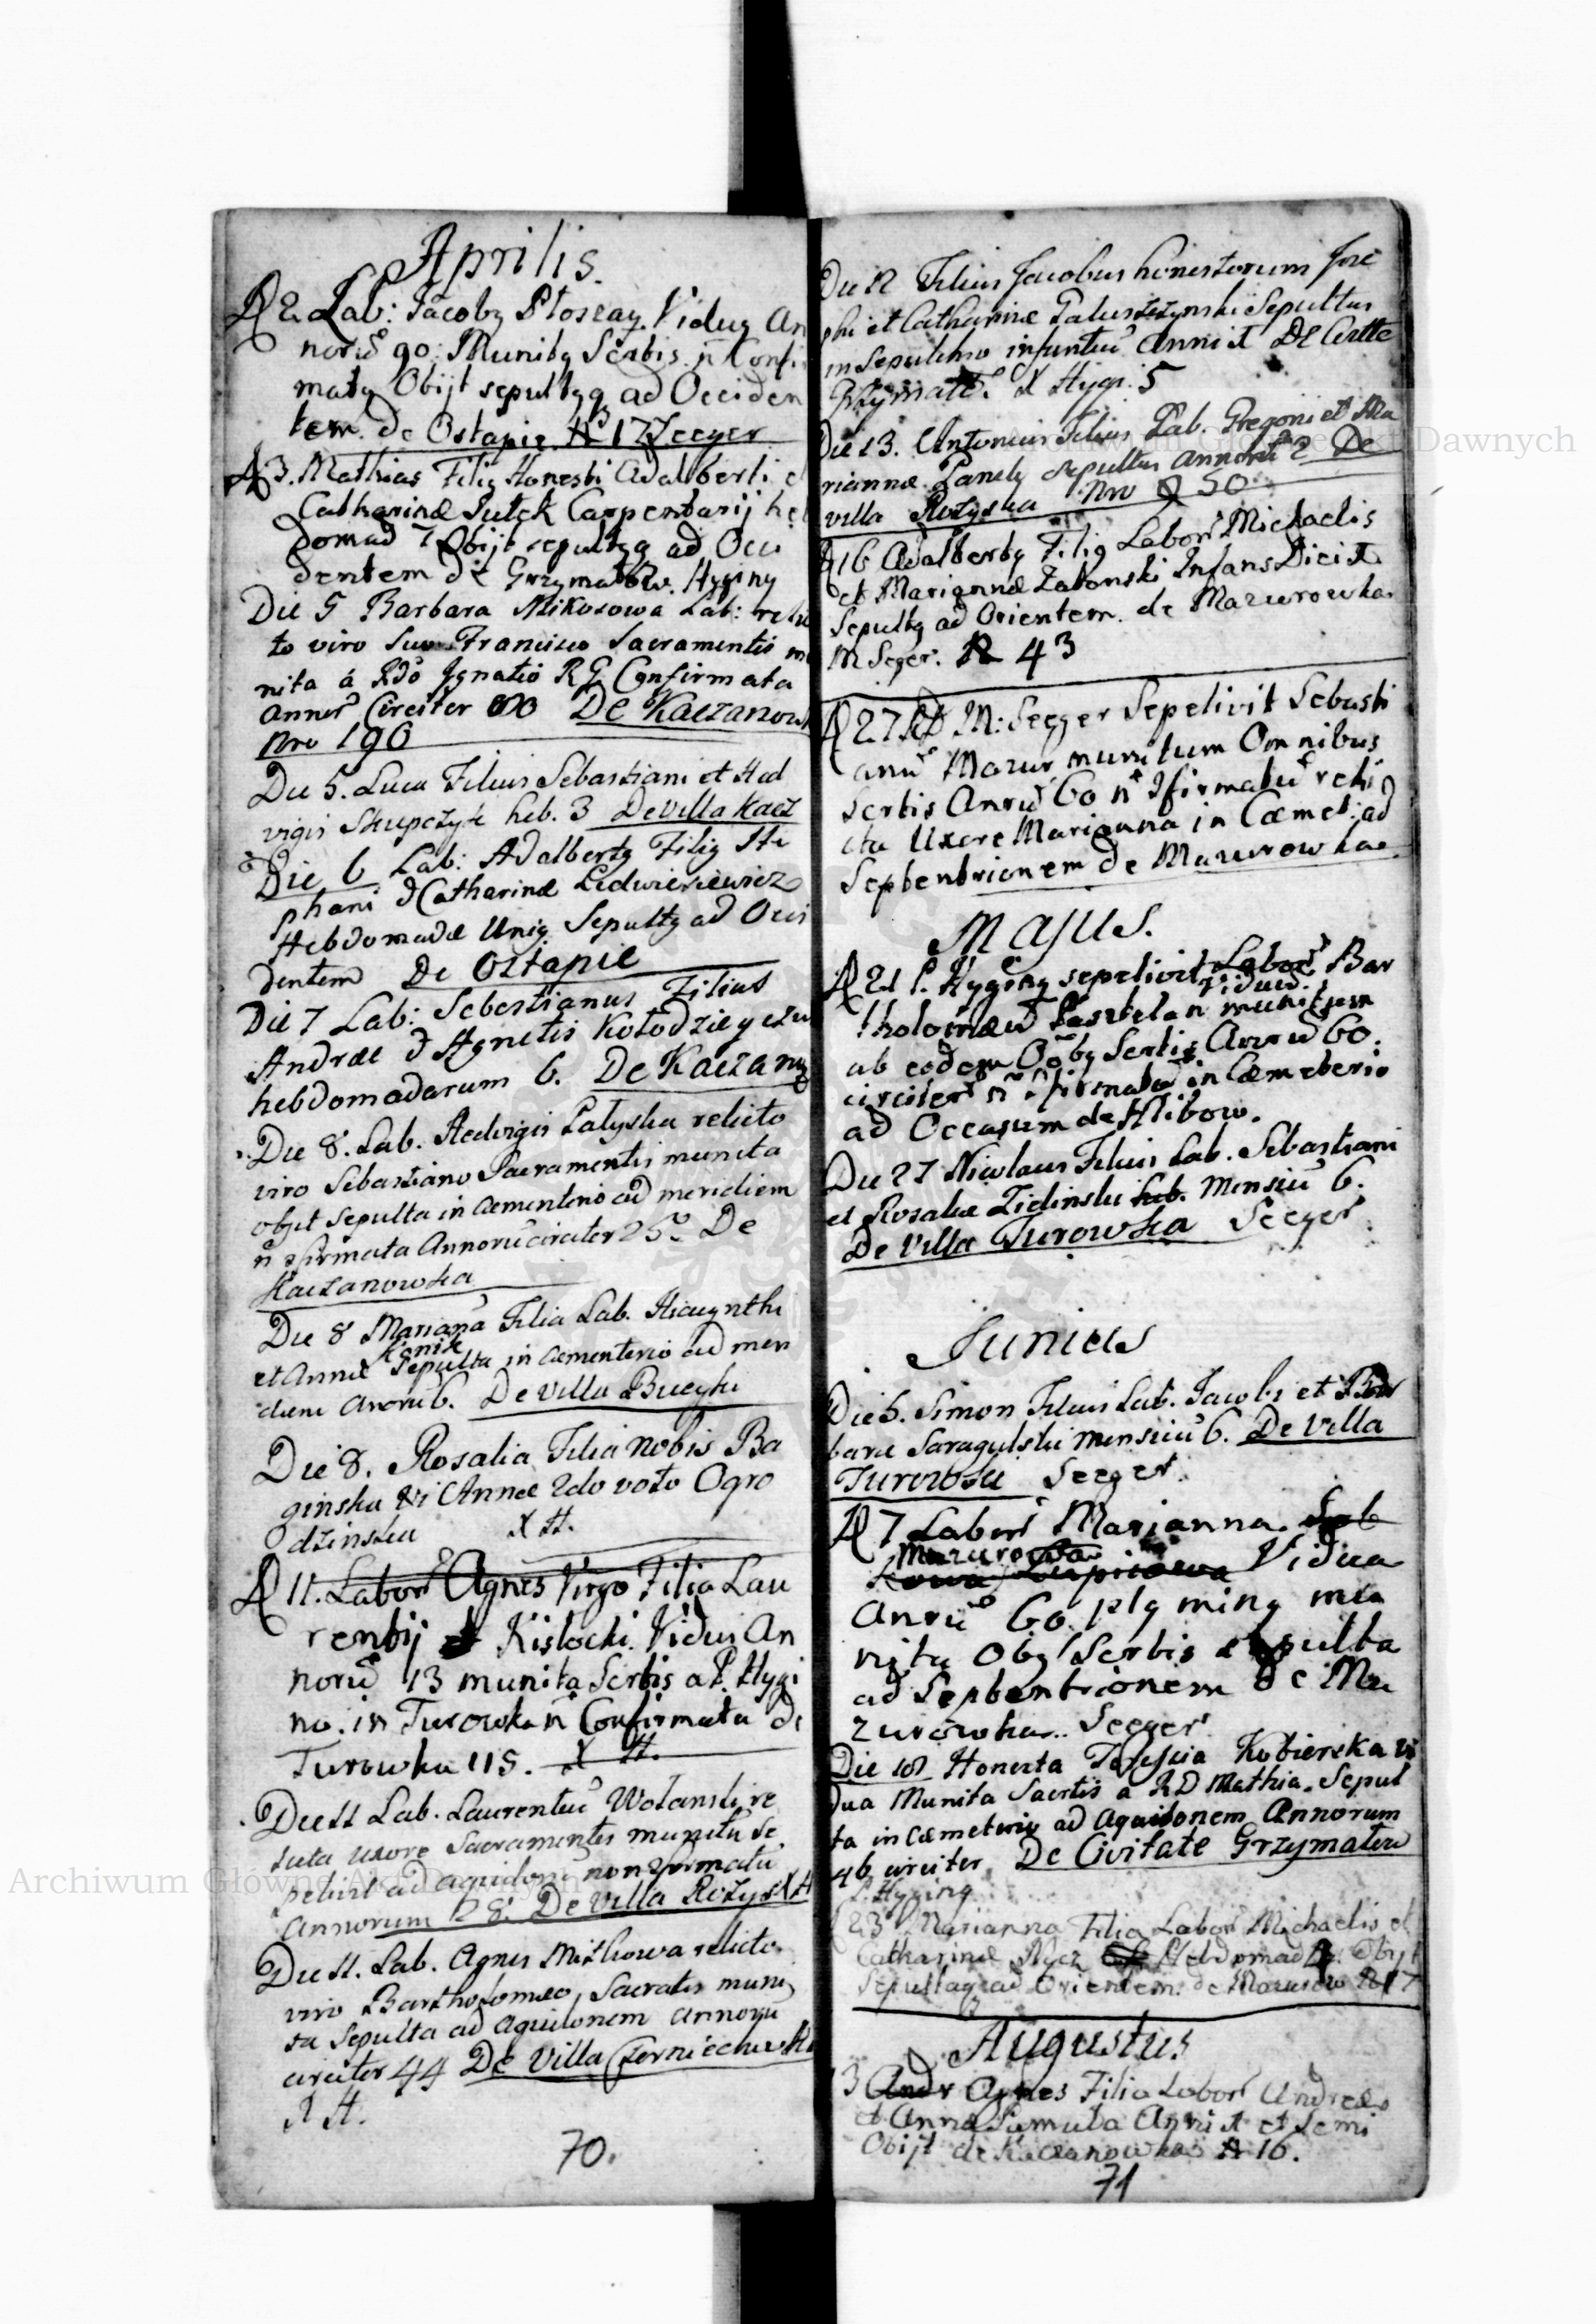 Aprilis.
D 2. Lab: Jacobq Ptoszay. Viduq An
norũ 90: Munitq Scrbis ñ Confir
matq Obijt sepultqq ad Occiden
tem. de Ostapie N 17 Seeger
D 3. Mathias Filiq Honesti Adalberti et
Catharinæ Sutek Carpentarij heb
domad 7 Obijt sepultqq ad Occi
dentem de Grzymatow. Hyginq
Die 5 Barbara Mikosowa Lab: relic
to viro Suo Francisco Sacramentis mu
nita á RDõ Ignatio RG Confirmata
Annor Circiter De Kaczanow
Nro 190
Die 5. Luca Filius Sebastiani et Hed
vigis Skupczyk heb. 3 De Villa Kacz
Die 6 Lab: Adalbertq Filiq Ste
phani & Catharinæ Ledwieniewicz
Hebdomadæ Uniq Sepultq ad Occi
dentem De Ostapie
Die 7 Lab: Sebestianus Filius
Andreæ & Agnetis Kotodzieyczu
hebdomadarum 6. De Kaczanu
Die 8. Lab. Hedvigis Patyska relicto
viro Sebastiano Sacramentis munita
obyt sepulta in Cementerio ad meridiem
ñ 2firmata Annorũ circiter 25. De
Kaczanowka
Die 8 Mariana Filia Lab. Hiacynthi
Konik
et Annæ Sepulta in Cæmenterio ad meri
diem Anoru 6. De Villa Bucyki
Die 8. Rosalia Filia Nobis Ba
ginska Annæ 2do voto Ogro
dzinska X H.
D 11. Labor Agnes Virgo Filia Lau
rentij Kistocki. Vidui An
norũ 13 munita Scrbis a P. Hygi
no. in Turowka ñ Confirmata de
Turowka 115. X H.
Die 11 Lab. Laurentiũ Wotanski re
licta uxore Sacramentis munitũ se
pelivit ad aquilonẽ non 2formatũ
Annorum 28. De Villa Rozysk X H
Die 11. Lab. Agnes Mitkowa relicto
viro Bartholomæo, Sacratis muni
ta sepulta ad aquilonem annorũ
circiter 44 De Villa Czerniechowka
X H.
70.
Die 12 Filius Jacobus honestorum Jose
phi et Catharinæ Paluszczynski Sepultus
in sepulchro infantiũ Anni 1. De Civitte
Grzymatõ. X Hygi: 5
Die 13. Antonius Filius Lab. Gregorii et Ma
riannæ Panely sepultus annorũ 2 De
villa Rozyska Nro 50
D 16 Adalbertq Filiq Labor Michaelis
et Mariannæ Zabonski Infans Diei 1.
Sepultq ad Orientem. de Mazurowka
M Seger. N 43
D 27 M: Seeger Sepelivit Sebasti
anũ Mazur munitum Omnibus
Scrtis Anrũ 60 ñ 2firmatũ reli
cta Uxore Marianna in Cæmet: ad
Septentrionem de Mazurowka
Majus.
D 21 P. Hyginq sepelivit Labor Bar
Viduũ.
tholomæũ Pasztelan munitum
ab eodem Oõbq Scrtis. Anrũ 60.
circiter ñ 2firmatũ in Cæmeterio
ad Occasum de Hlibow.
Die 27 Nicolaus Filius Lab. Sebastiani
et Rosaliæ Zielinski heb. Mensiũ 6.
De Villa Turowka Seeger
Junius
Die 5. Simon Filius Lab. Jacobi et Bar
baræ Saragulski mensiũ 6. De Villa
Turowka Seeger.
D 7 Labor Marianna. Sob
Mazurowa
kowa Vidua
Anrũ 60. plq minq mu
nita Obq Scrbis sepulta
ad Septentrionem de Ma
zurowka.. Seeger
Die 18 Honesta Kobierska vi
dua Munita Sacrtis a RD Mathia. Sepul
ta in Cæmeterio ad Aquilonem Annorum
46 circiter. De Civitate Grzymatow
P. Hyginq
23 Marianna Filia Labor Michaelis et
Catharinæ Hebdomad. Obijt
Sepultaq ad Orientem. de Mazurow N 17
Augustus
3 Andr Agnes Filia Labor Andreæ
et Anna Sumuta Anni 1 et Semi
Obijt de Kaczanowka N 16.
71
Archiwum Główne Akt Dawnych
Archiwum Główne Akt Dawnych